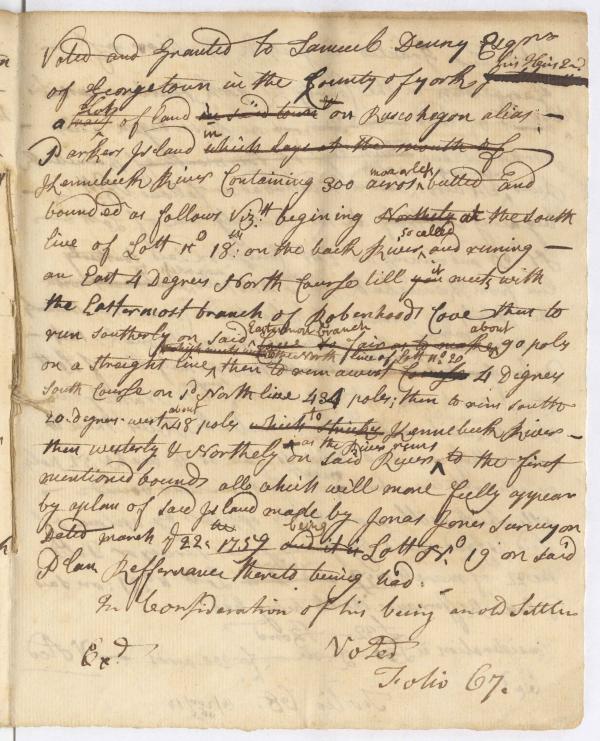 Voted and Granted to Samuel Denny Esqr
of Georgetown in the County of york, his Heirs &ca
a Lott of land in said town on Ruscohegon alias
Parkers Island in which lays at the mouth of
Kennebeck River Containing 300 acres more or less butted and
bounded as follows Vizt begining Northely at the South
line of Lott No 18th: on the back River so called and runing
an East 4 Degrees North Course till it meets with
the Eastermost branch of Robenhoods Cove then to
run southerly on said Eastermost branch about 90 poles
on a straight line, then to run a west 4 Digrees
South Course on sd North line 434 poles; then to run south
20 degres west about 48 poles to Kennebeck River
then westerly & Northely on said River as the River runs to the first
mentioned bounds all which will more fully appear
by a plan of said Island made by Jonas Jones Surveyor
Dated march ye 22d 1759 and it is being Lott No 19 on said
Plan Refferrance thereto being had.
In Consideration of his being an old Settler
Exd Voted
Folio 67.